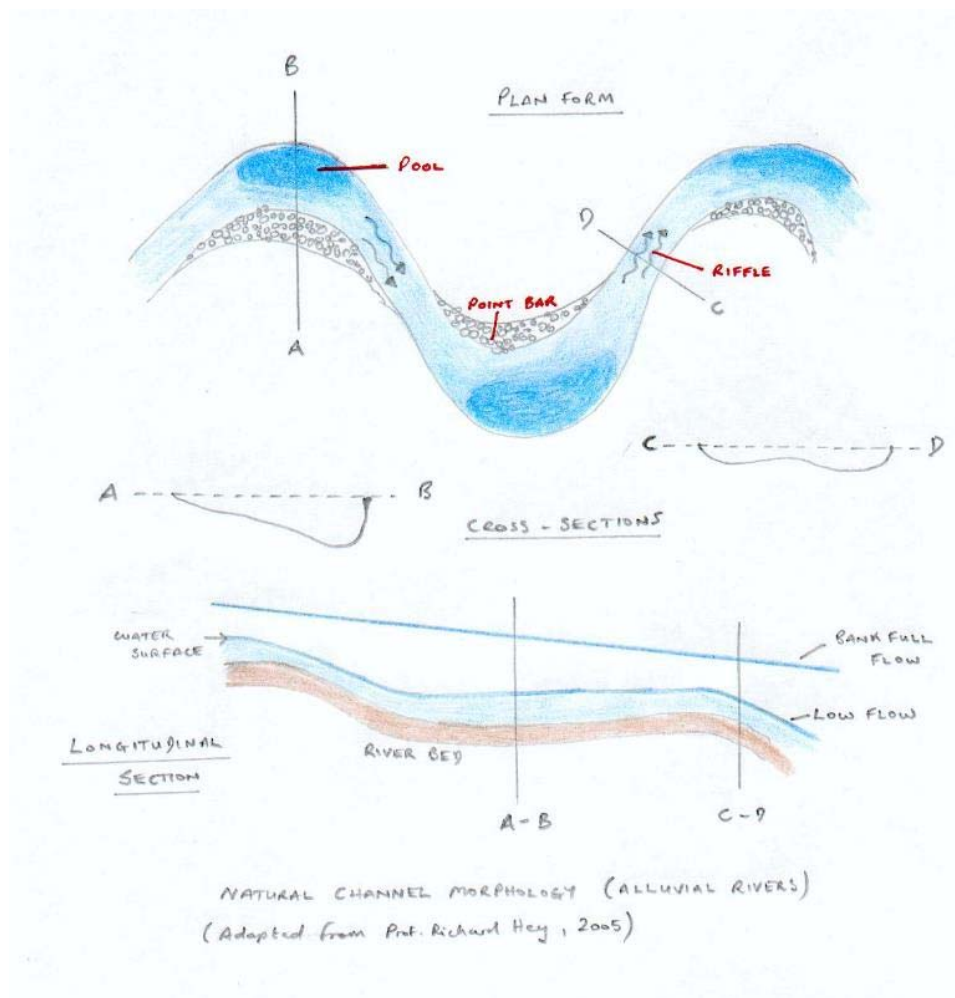 B
PLAN FORM
POOL
D
RIFFLE
POINT BAR
C
A
C
D
A
B
CROSS-SECTIONS
WATER
SURFACE
BANK FULL
FLOW
LOW FLOW
LONGITUDINAL
SECTION
RIVER BED
A-B
C-D
NATURAL CHANNEL MORPHOLOGY (ALLUVIAL RIVERS)
(Adapted from Prof. Richard Hey, 2005)